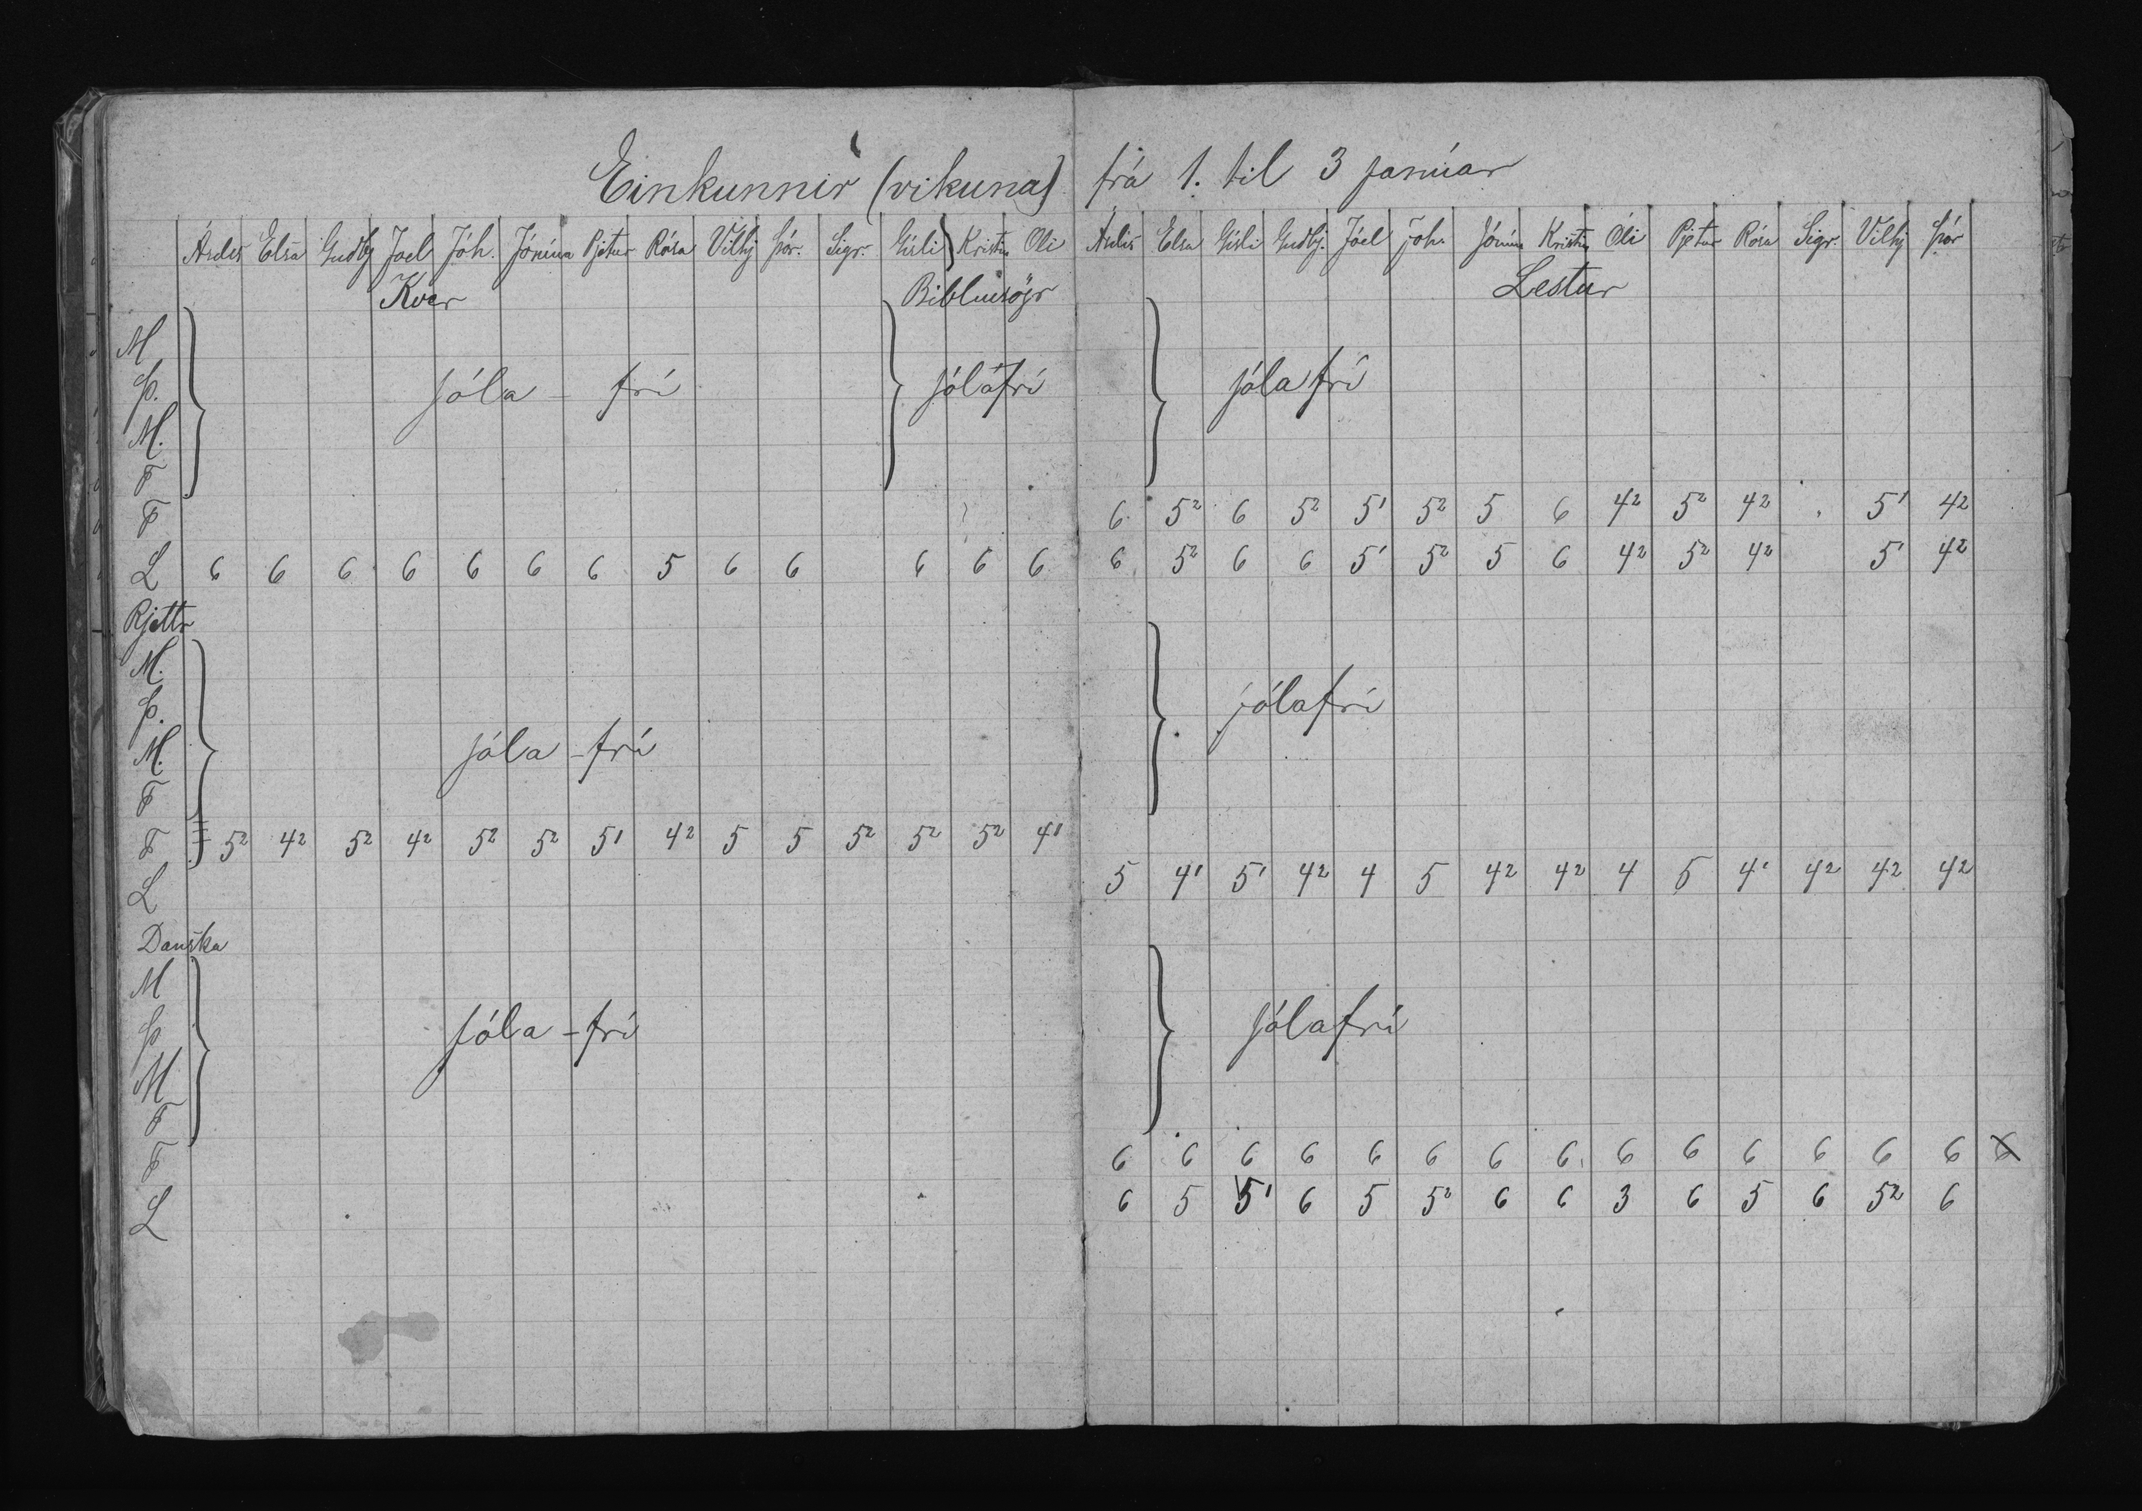 Einkunnir (vikuna) frá 1. til 3 janúar
Árdís Elsa Guðbj Joel Jóh. Jónína Pjetur Rósa Vilhj Þór. Sigr. Gísli Kristín Oli
Kver Biblíusögr
M
Þ.
M.
F
jóla - frí jólafrí
F
L 6 6 6 6 6 6 6 5 6 6 6 6 6
Rjettr
M.
Þ.
M.
F
jóla - frí
F 5² 4² 5² 4² 5² 5² 5¹ 4² 5 5 5² 5² 5² 4¹
L
Danska
M
Þ
M
F
jóla - frí
F
L
Árdís Elsa Gísli Guðbj. Jóel Jóh. Jónína Kristín Óli Pjetur Rósa Sigr. Vilhj Þór
Lestur
jólafrí
6 5² 6 5² 5¹ 5² 5 6 4² 5² 4² 5¹ 4²
6 5² 6 6 5¹ 5² 5 6 4² 5² 4² 5¹ 4²
jólafrí
5 4¹ 5¹ 4² 4 5 4² 4² 4 5 4¹ 4² 4² 4²
jólafrí
6 6 6 6 6 6 6 6 6 6 6 6 6 6 6
6 5 5¹ 6 5 5² 6 6 3 6 5 6 5² 6